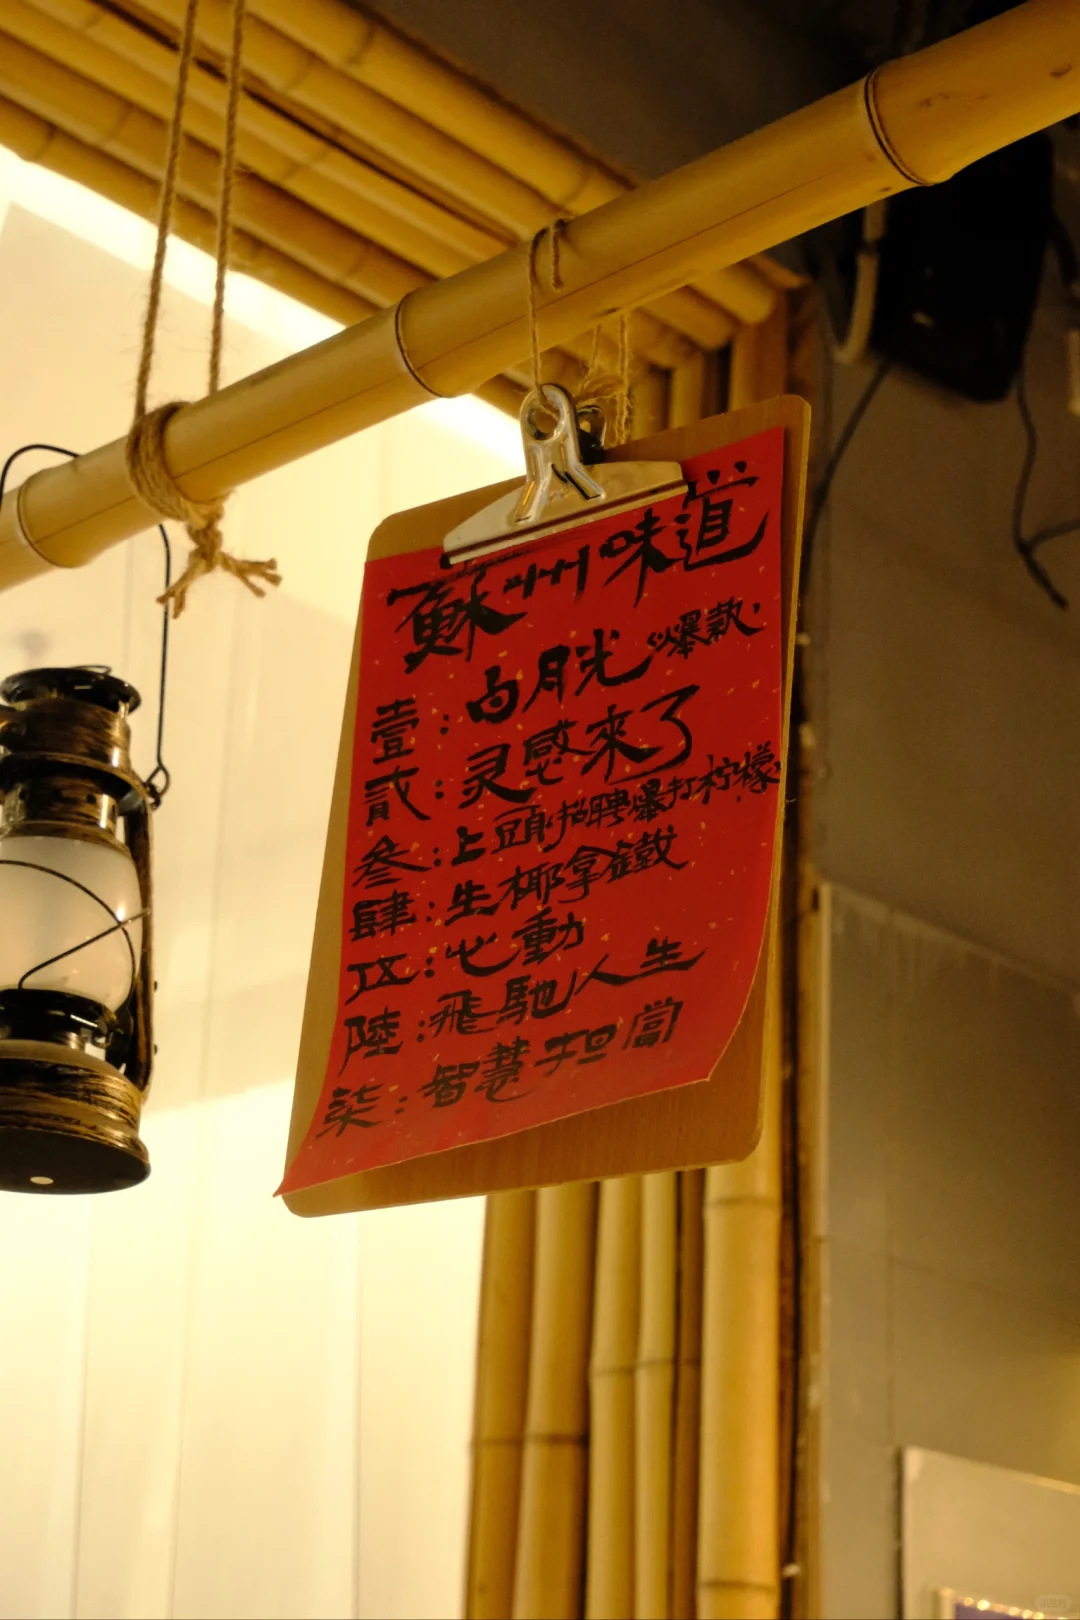 蘇州味道
壹：白月光“爆款”
貳：灵感來了
叁：上頭“招聘爆打柠檬
肆：生椰拿鐵
伍：心動
陸：飛馳人生
柒：智慧担當
小红书